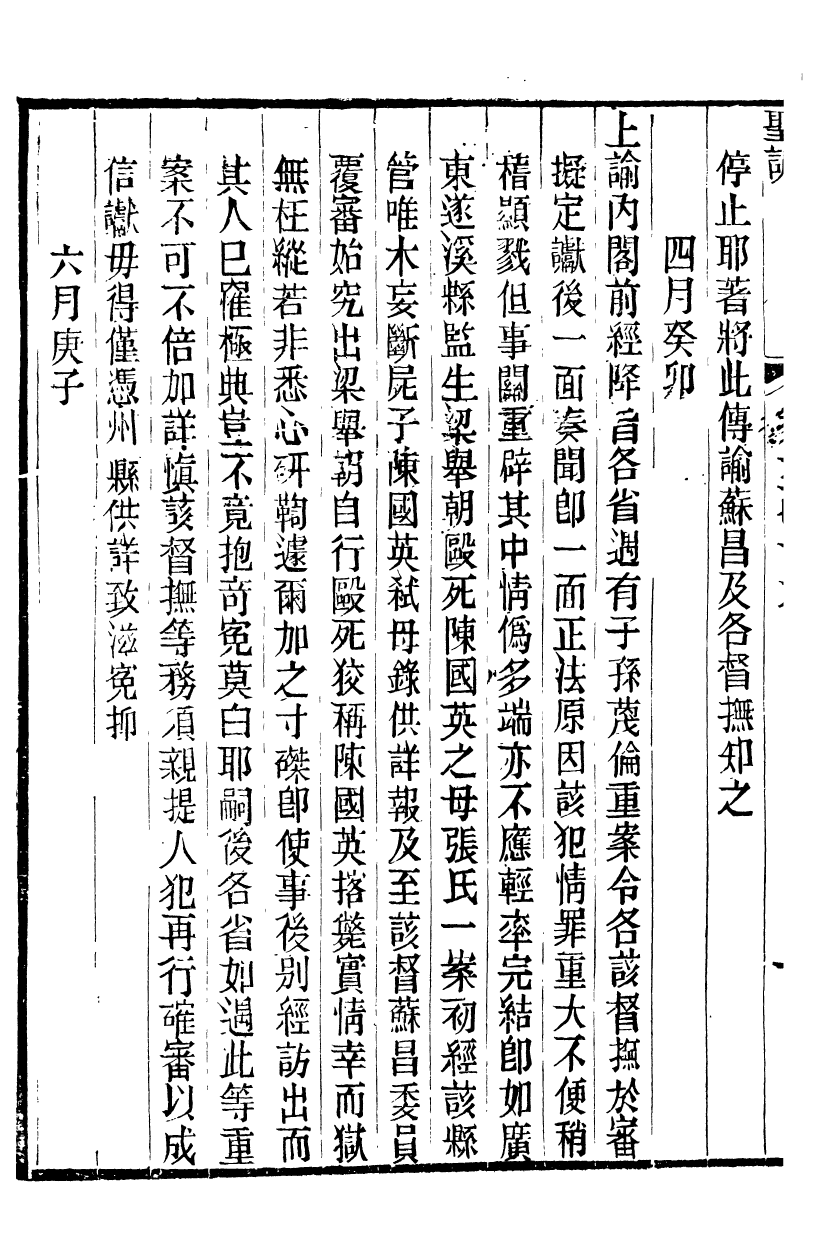 聖訓
停止耶著將此傳諭蘇昌及各督撫知之
四月癸卯
上諭內閣前經降旨各省遇有子孫蔑倫重案令各該督撫於審
擬定讞後一面奏聞卽一面正法原因該犯情罪重大不便稍
稽顯戮但事關重辟其中情僞多端亦不應輕率完結卽如廣
東遂溪縣監生梁舉朝毆死陳國英之母張氏一案初經該縣
管唯木妄斷屍子陳國英弒母錄供詳報及至該督蘇昌委員
覆審始究出梁舉朝自行毆死狡稱陳國英撘斃實情幸而獄
無枉縱若非悉心研鞫遽爾加之寸磔卽使事後別經訪出而
其人已罹極典豈不竟抱奇冤莫白耶嗣後各省如遇此等重
案不可不倍加詳慎該督撫等務須親提人犯再行確審以成
信讞毋得僅憑州縣供詳致滋冤抑
六月庚子